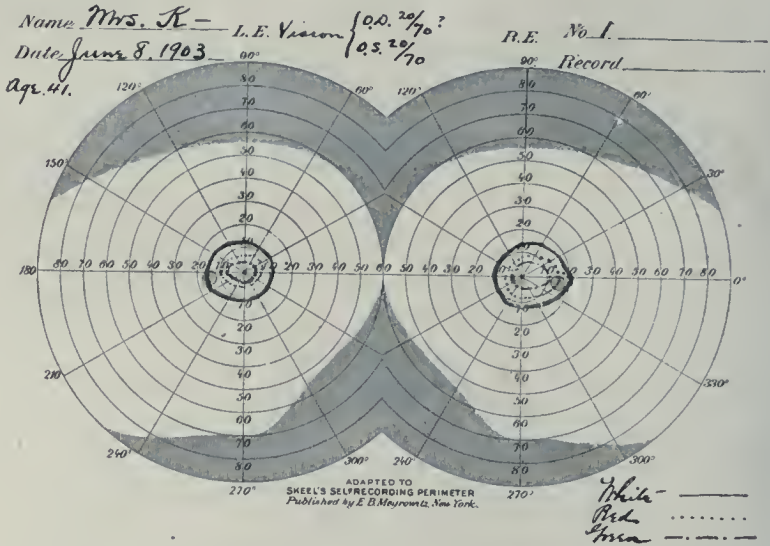 Name Mrs. K— L.E. Vision { O.D. 20/70 ? R.E. No 1.
Date June 8, 1903 O.S. 20/70 Record
Age. 41.
90° 90°
120° 60° 120° 60°
150° 30°
80 70 60 50 40 30 20 10 80 70 60 50 40 30 20 10
180 80 70 60 50 40 30 20 10 10 20 30 40 50 60 50 40 30 20 10 10 20 30 40 50 60 70 80 0°
10 20 30 40 50 60 70 80 10 20 30 40 50 60 70 80
210 330°
240° 300° 240° 300°
270° 270°
ADAPTED TO
SKEEL'S SELFRECORDING PERIMETER
Published by E.B. Meyrowitz, New York.
White
Red
Green